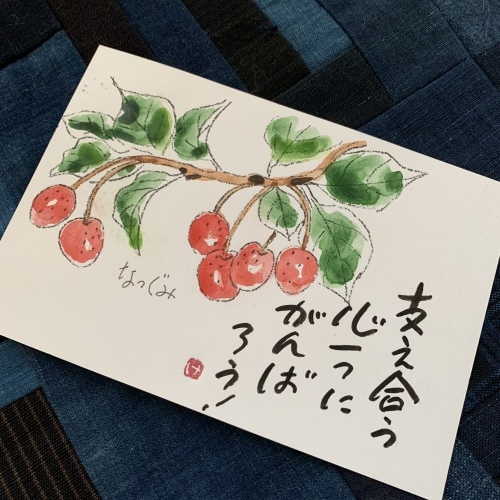 支え合う
心一つに
がんば
ろう!
なつぐみ
け